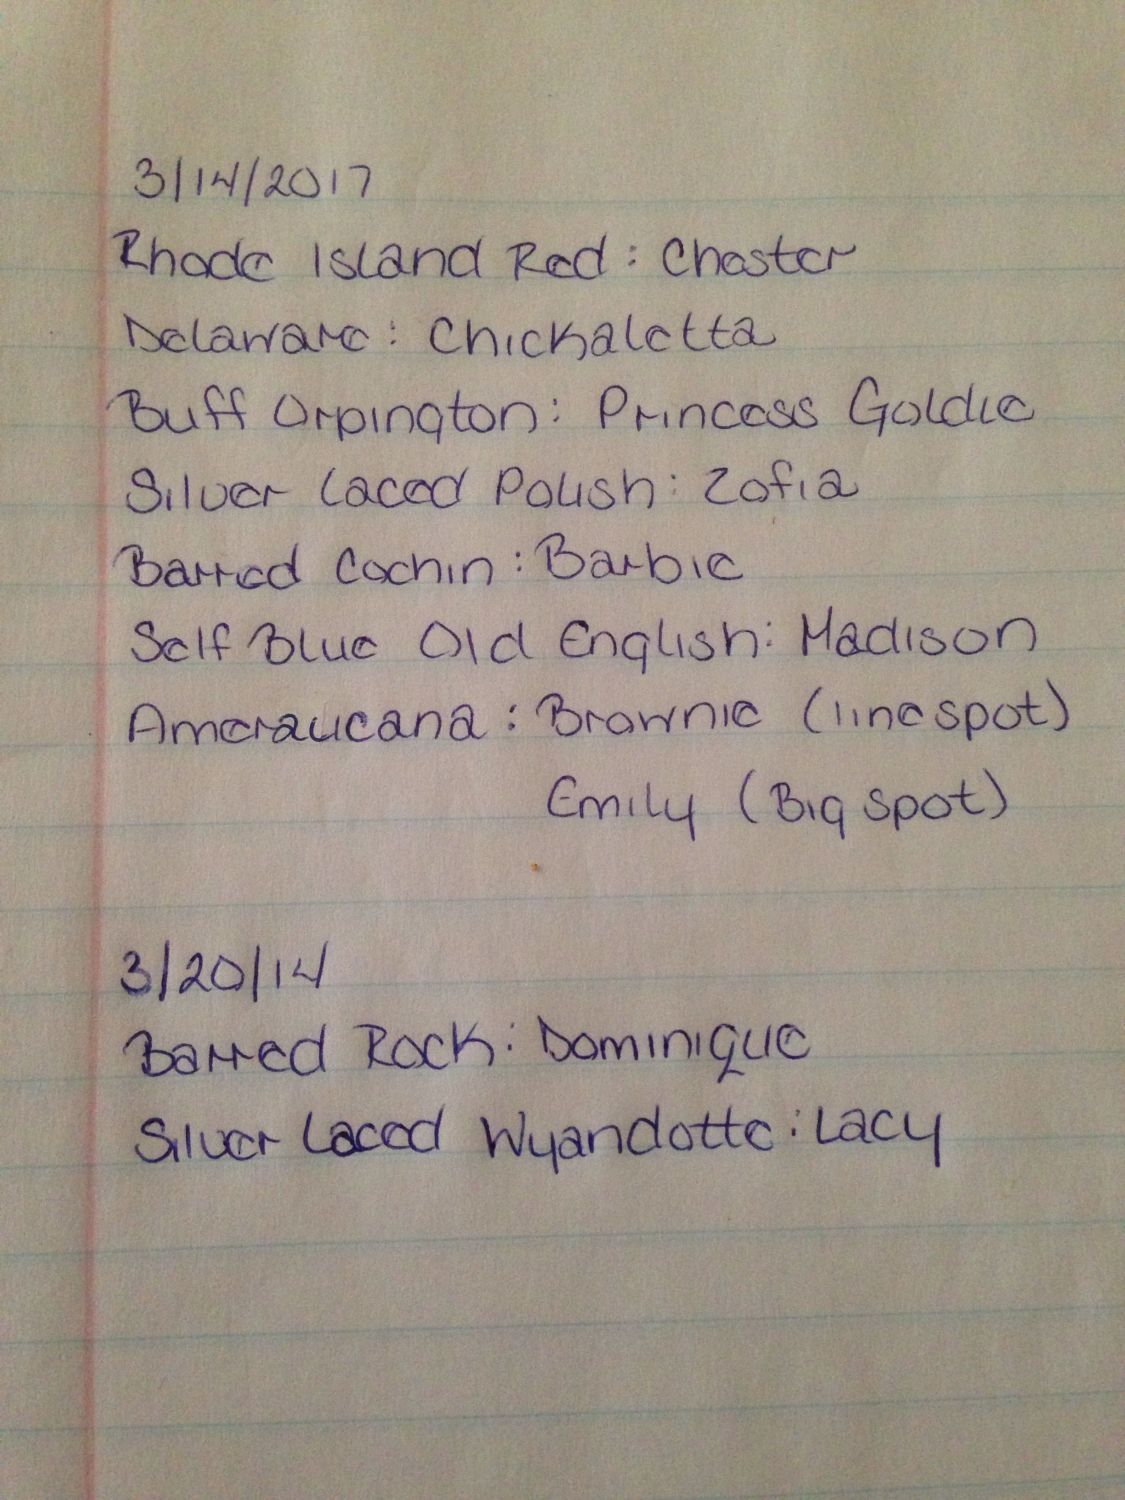 3/14/2017
Rhode Island Red: Chester
Delaware: Chickaletta
Buff Orpington: Princess Goldie
Silver Laced Polish: Zofia
Barred Cochin: Barbie
Self Blue Old English: Madison
Ameraucana: Brownie (line spot)
Emily (Big spot)
3/20/14
Barred Rock: Dominique
Silver Laced Wyandotte: Lacy